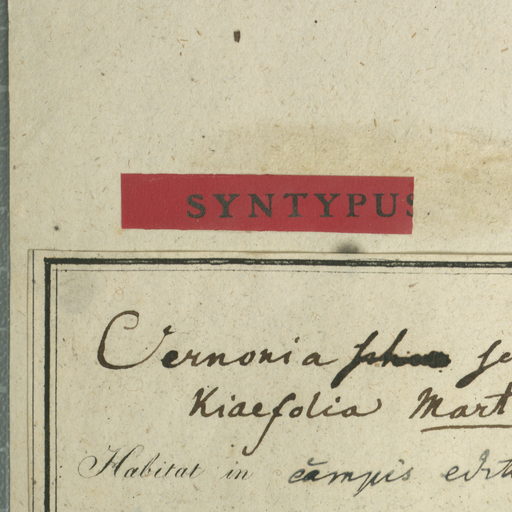 SYNTYPUS
Vernonia se
Kiaefolia Mart
Habitat in campis